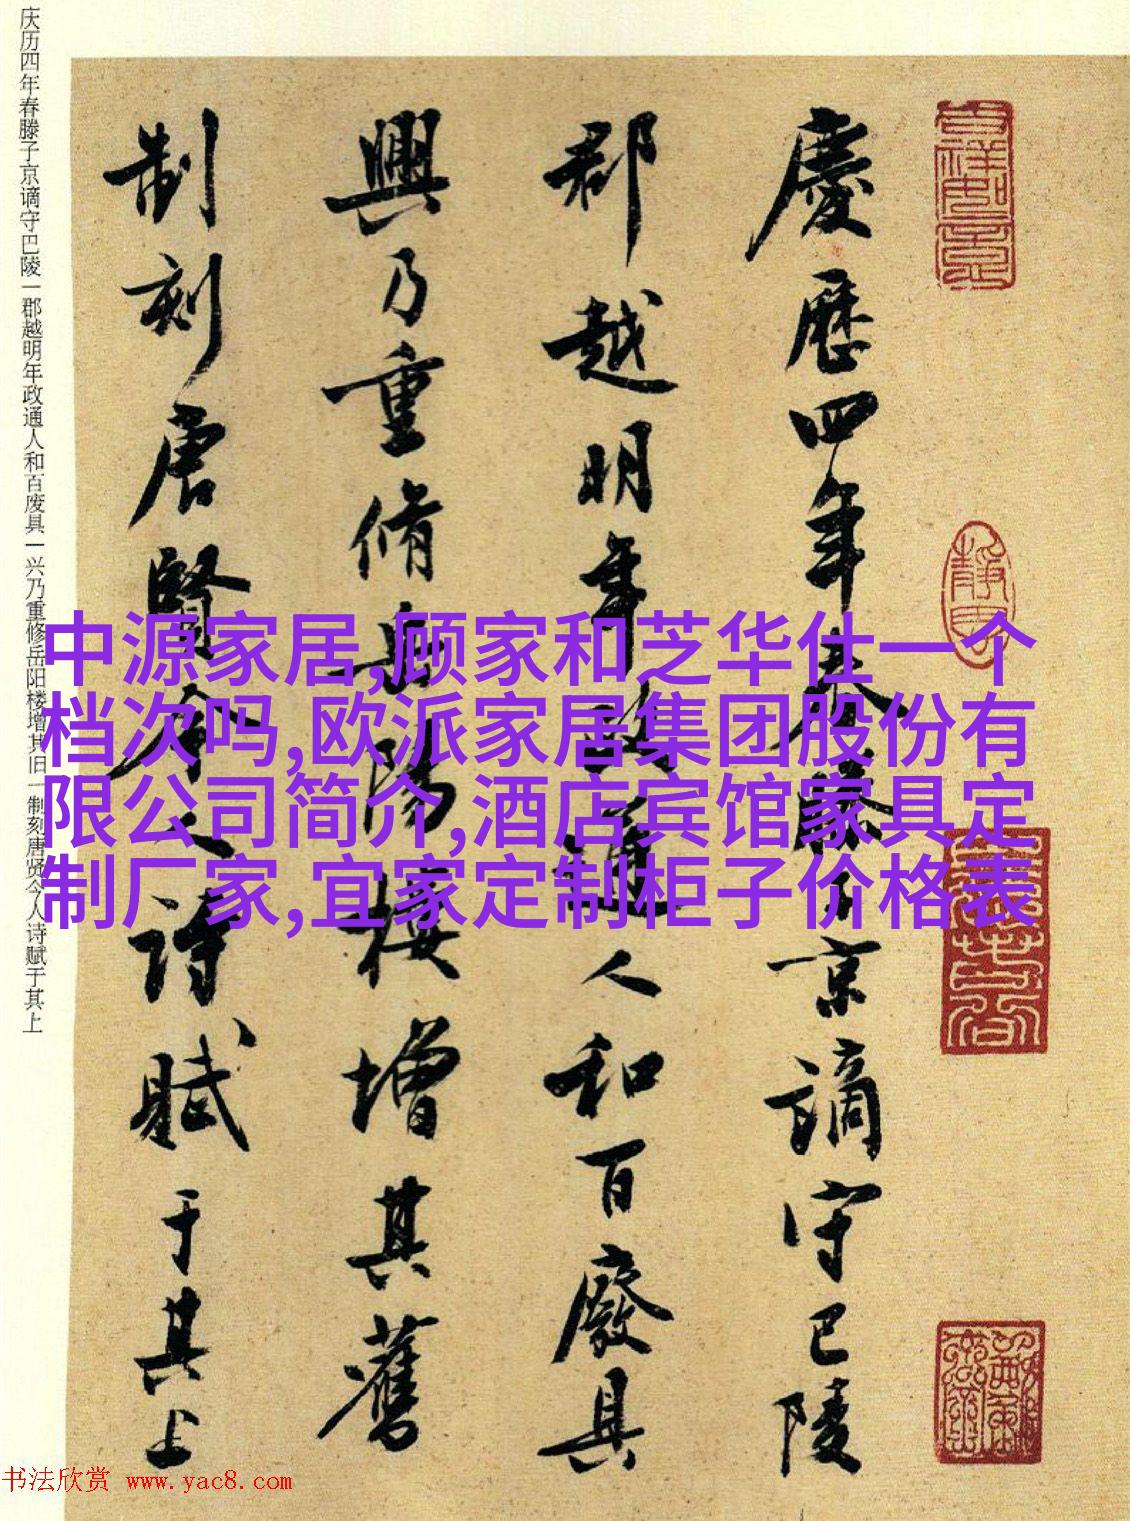 庆历四年春滕子京谪守巴陵一郡越明年政通人和百废具一兴乃重修岳阳楼增其旧一制刻唐贤今人诗赋于其上
慶歷四年春滕子京謫守巴陵
郡越明年政通人和百廢具
興乃重脩岳陽樓增其舊
制刻唐賢今人诗賦于其上
中源家居,顾家和芝华仕一个
档次吗,欧派家居集团股份有
限公司简介,酒店宾馆家具定
制厂家,宜家定制柜子价格表
书法欣赏 www.yac8.com